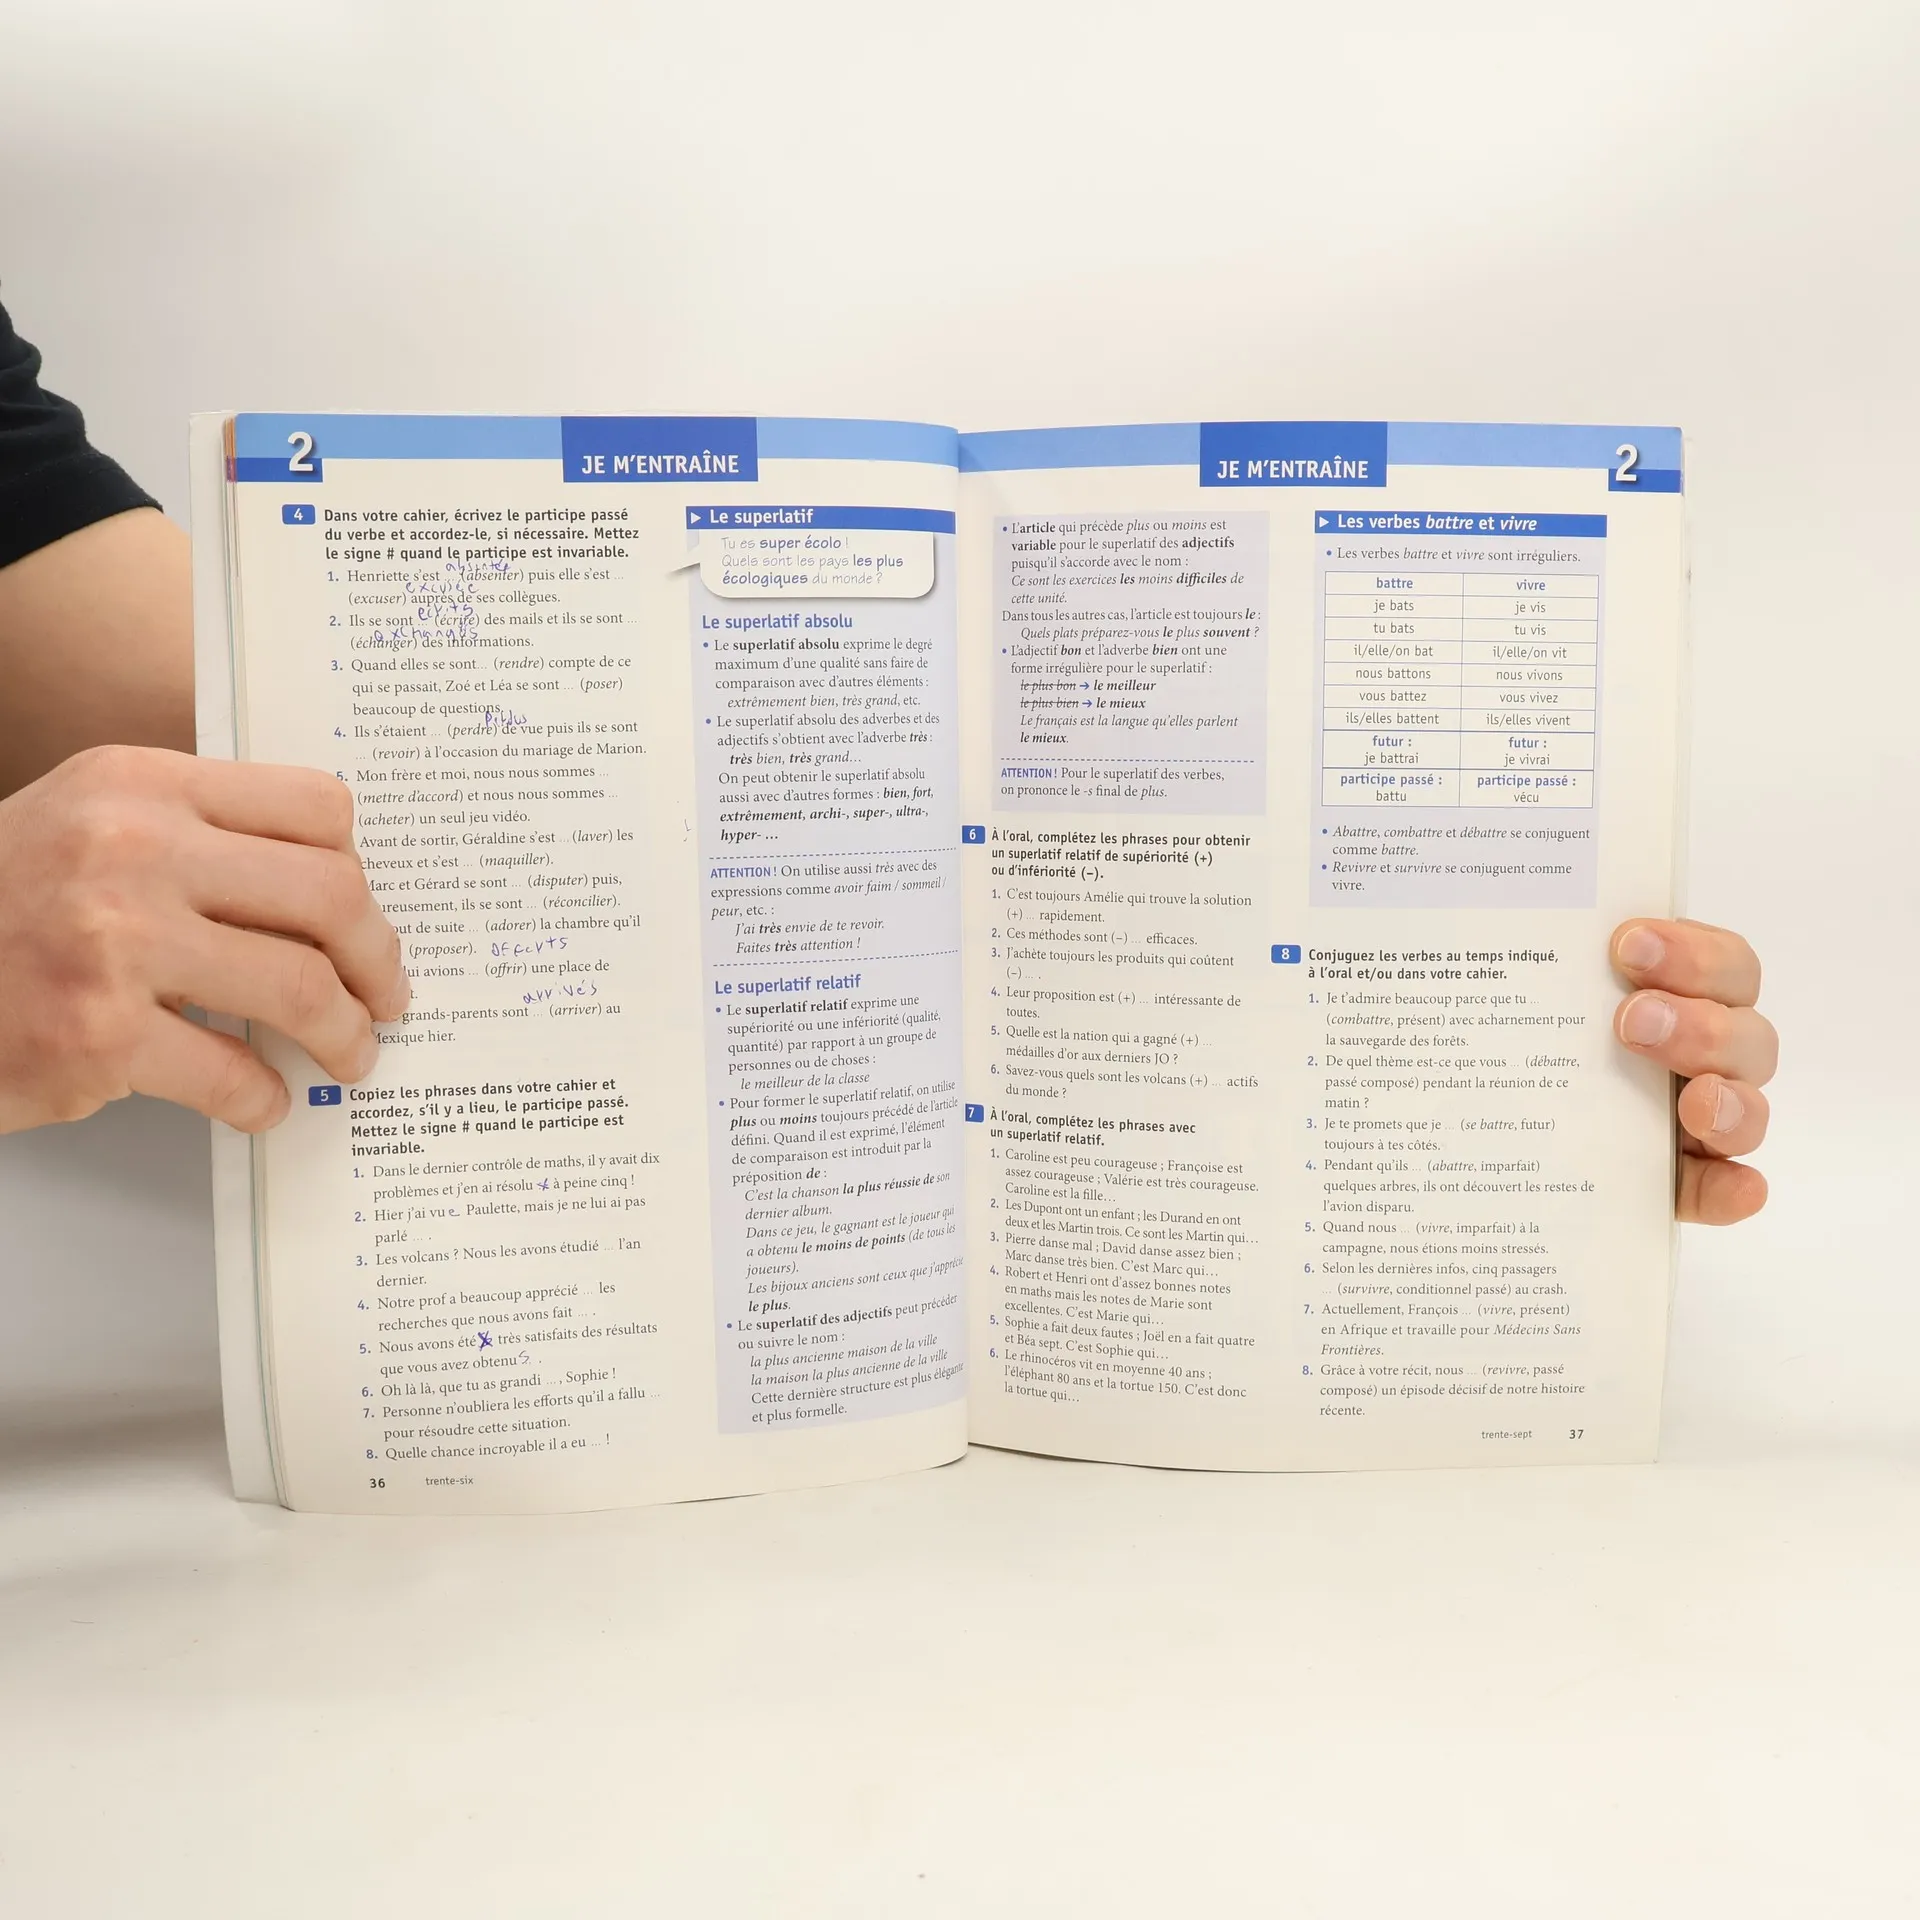 2
JE M'ENTRAÎNE
4 Dans votre cahier, écrivez le participe passé
du verbe et accordez-le, si nécessaire. Mettez
le signe # quand le participe est invariable.
1. Henriette s'est ... (absenter) puis elle s'est ...
excusée
(excuser) auprès de ses collègues.
écrits
2. Ils se sont ... (écrire) des mails et ils se sont ...
(échanger) des informations.
3. Quand elles se sont... (rendre) compte de ce
qui se passait, Zoé et Léa se sont ... (poser)
beaucoup de questions.
4. Ils s'étaient ... (perdre) de vue puis ils se sont
... (revoir) à l'occasion du mariage de Marion.
5. Mon frère et moi, nous nous sommes ...
(mettre d'accord) et nous nous sommes ...
(acheter) un seul jeu vidéo.
Avant de sortir, Géraldine s'est ... (laver) les
cheveux et s'est ... (maquiller).
Marc et Gérard se sont ... (disputer) puis,
ureusement, ils se sont ... (réconcilier).
out de suite ... (adorer) la chambre qu'il
(proposer).
lui avions ... (offrir) une place de
t.
arrivés
grands-parents sont ... (arriver) au
Mexique hier.
5 Copiez les phrases dans votre cahier et
accordez, s'il y a lieu, le participe passé.
Mettez le signe # quand le participe est
invariable.
1. Dans le dernier contrôle de maths, il y avait dix
problèmes et j'en ai résolu à peine cinq !
2. Hier j'ai vue Paulette, mais je ne lui ai pas
parlé ... .
3. Les volcans ? Nous les avons étudié ... l'an
dernier.
4. Notre prof a beaucoup apprécié ... les
recherches que nous avons fait ... .
5. Nous avons été très satisfaits des résultats
que vous avez obtenus .
6. Oh là là, que tu as grandi ... , Sophie !
7. Personne n'oubliera les efforts qu'il a fallu ...
pour résoudre cette situation.
8. Quelle chance incroyable il a eu ... !
36 trente-six
▶ Le superlatif
Tu es super écolo !
Quels sont les pays les plus
écologiques du monde ?
Le superlatif absolu
• Le superlatif absolu exprime le degré
maximum d'une qualité sans faire de
comparaison avec d'autres éléments :
extrêmement bien, très grand, etc.
• Le superlatif absolu des adverbes et des
adjectifs s'obtient avec l'adverbe très :
très bien, très grand...
On peut obtenir le superlatif absolu
aussi avec d'autres formes : bien, fort,
extrêmement, archi-, super-, ultra-,
hyper- ...
ATTENTION ! On utilise aussi très avec des
expressions comme avoir faim / sommeil /
peur, etc. :
J'ai très envie de te revoir.
Faites très attention !
Le superlatif relatif
• Le superlatif relatif exprime une
supériorité ou une infériorité (qualité,
quantité) par rapport à un groupe de
personnes ou de choses :
le meilleur de la classe
• Pour former le superlatif relatif, on utilise
plus ou moins toujours précédé de l'article
défini. Quand il est exprimé, l'élément
de comparaison est introduit par la
préposition de :
C'est la chanson la plus réussie de son
dernier album.
Dans ce jeu, le gagnant est le joueur qui
a obtenu le moins de points (de tous les
joueurs).
Les bijoux anciens sont ceux que j'apprécie
le plus.
• Le superlatif des adjectifs peut précéder
ou suivre le nom :
la plus ancienne maison de la ville
la maison la plus ancienne de la ville
Cette dernière structure est plus élégante
et plus formelle.
JE M'ENTRAÎNE
2
• L'article qui précède plus ou moins est
variable pour le superlatif des adjectifs
puisqu'il s'accorde avec le nom :
Ce sont les exercices les moins difficiles de
cette unité.
Dans tous les autres cas, l'article est toujours le :
Quels plats préparez-vous le plus souvent ?
• L'adjectif bon et l'adverbe bien ont une
forme irrégulière pour le superlatif :
le plus bon → le meilleur
le plus bien → le mieux
Le français est la langue qu'elles parlent
le mieux.
ATTENTION ! Pour le superlatif des verbes,
on prononce le -s final de plus.
6 À l'oral, complétez les phrases pour obtenir
un superlatif relatif de supériorité (+)
ou d'infériorité (–).
1. C'est toujours Amélie qui trouve la solution
(+) ... rapidement.
2. Ces méthodes sont (–) ... efficaces.
3. J'achète toujours les produits qui coûtent
(–) ... .
4. Leur proposition est (+) ... intéressante de
toutes.
5. Quelle est la nation qui a gagné (+) ...
médailles d'or aux derniers JO ?
6. Savez-vous quels sont les volcans (+) ... actifs
du monde ?
7 À l'oral, complétez les phrases avec
un superlatif relatif.
1. Caroline est peu courageuse ; Françoise est
assez courageuse ; Valérie est très courageuse.
Caroline est la fille...
2. Les Dupont ont un enfant ; les Durand en ont
deux et les Martin trois. Ce sont les Martin qui...
3. Pierre danse mal ; David danse assez bien ;
Marc danse très bien. C'est Marc qui...
4. Robert et Henri ont d'assez bonnes notes
en maths mais les notes de Marie sont
excellentes. C'est Marie qui...
5. Sophie a fait deux fautes ; Joël en a fait quatre
et Béa sept. C'est Sophie qui...
6. Le rhinocéros vit en moyenne 40 ans ;
l'éléphant 80 ans et la tortue 150. C'est donc
la tortue qui...
▶ Les verbes battre et vivre
• Les verbes battre et vivre sont irréguliers.
battre vivre
je bats je vis
tu bats tu vis
il/elle/on bat il/elle/on vit
nous battons nous vivons
vous battez vous vivez
ils/elles battent ils/elles vivent
futur : futur :
je battrai je vivrai
participe passé : participe passé :
battu vécu
• Abattre, combattre et débattre se conjuguent
comme battre.
• Revivre et survivre se conjuguent comme
vivre.
8 Conjuguez les verbes au temps indiqué,
à l'oral et/ou dans votre cahier.
1. Je t'admire beaucoup parce que tu ...
(combattre, présent) avec acharnement pour
la sauvegarde des forêts.
2. De quel thème est-ce que vous ... (débattre,
passé composé) pendant la réunion de ce
matin ?
3. Je te promets que je ... (se battre, futur)
toujours à tes côtés.
4. Pendant qu'ils ... (abattre, imparfait)
quelques arbres, ils ont découvert les restes de
l'avion disparu.
5. Quand nous ... (vivre, imparfait) à la
campagne, nous étions moins stressés.
6. Selon les dernières infos, cinq passagers
... (survivre, conditionnel passé) au crash.
7. Actuellement, François ... (vivre, présent)
en Afrique et travaille pour Médecins Sans
Frontières.
8. Grâce à votre récit, nous ... (revivre, passé
composé) un épisode décisif de notre histoire
récente.
trente-sept 37